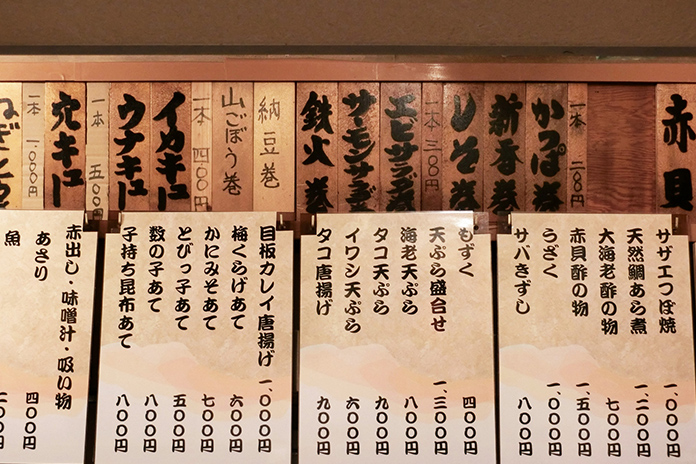 赤貝
一本 二〇〇円
かっぱ巻
新香巻
しそ巻
一本 三〇〇円
エビサラダ巻
サーモンサラダ巻
鉄火巻
納豆巻
山ごぼう巻
一本 四〇〇円
イカキュー
ウナキュー
一本 五〇〇円
穴キュー
一本 一〇〇〇円
サザエつぼ焼 一、〇〇〇円
天然鯛あら煮 一、二〇〇円
大海老酢の物 七〇〇円
赤貝酢の物 一、五〇〇円
うざく 一、〇〇〇円
サバきずし 八〇〇円
もずく 四〇〇円
天ぷら盛合せ 一、三〇〇円
海老天ぷら 八〇〇円
タコ天ぷら 九〇〇円
イワシ天ぷら 六〇〇円
タコ唐揚げ 九〇〇円
目板カレイ唐揚げ 一、〇〇〇円
梅くらげあて 六〇〇円
かにみそあて 七〇〇円
とびっ子あて 五〇〇円
数の子あて 八〇〇円
子持ち昆布あて 八〇〇円
赤出し・味噌汁・吸い物
あさり 四〇〇円
魚 二〇〇円